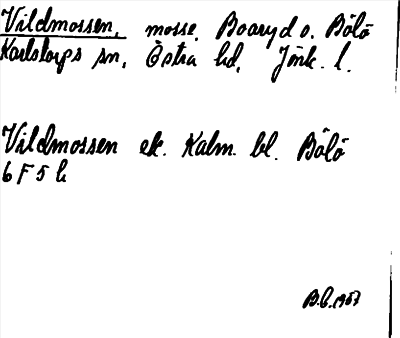 Vildmossen, mosse. Boaryd o. Bölö
Karlstorps sn, Östra hd, Jönk. l.
Vildmossen ek. Kalm. bl. Bölö
6 F 5 h
B.E. 1957